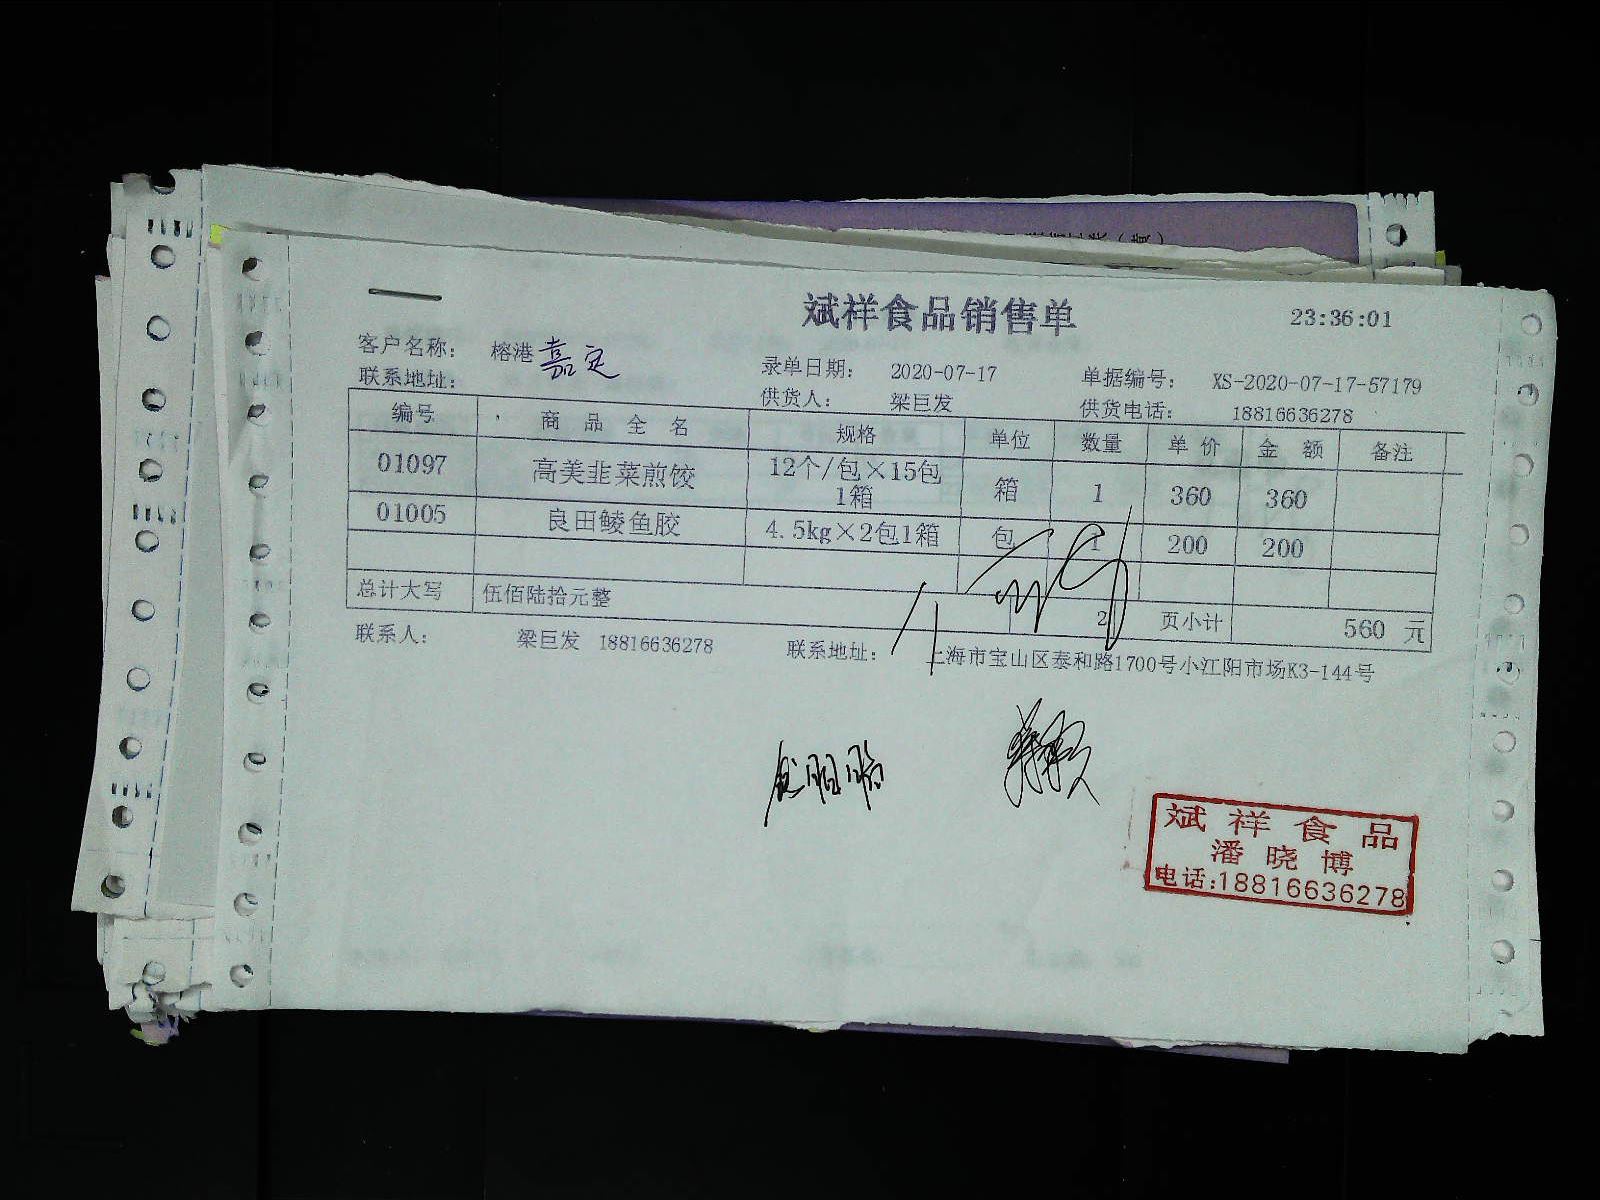 斌祥食品销售单
23:36:01
客户名称： 榕港嘉定
录单日期： 2020-07-17
单据编号： XS-2020-07-17-57179
联系地址：
供货人： 梁巨发
供货电话： 18816636278
编号 商品全名 规格 单位 数量 单价 金额 备注
01097 高美韭菜煎饺 12个/包×15包1箱 箱 1 360 360
01005 良田鲮鱼胶 4.5kg×2包1箱 包 1 200 200
总计大写 伍佰陆拾元整 2 页小计 560 元
联系人： 梁巨发 18816636278 联系地址： 上海市宝山区泰和路1700号小江阳市场K3-144号
斌祥食品
潘晓博
电话:18816636278